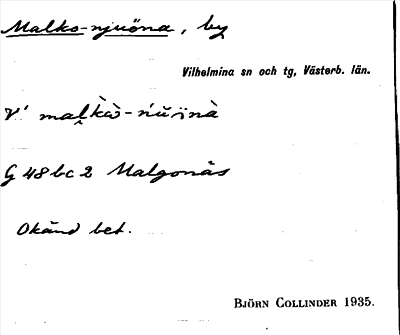 Malko-njuöna, by
Vilhelmina sn och tg, Västerb. län.
G 48 bc 2 Malgonäs
Okänd bet.
BJÖRN COLLINDER 1935.